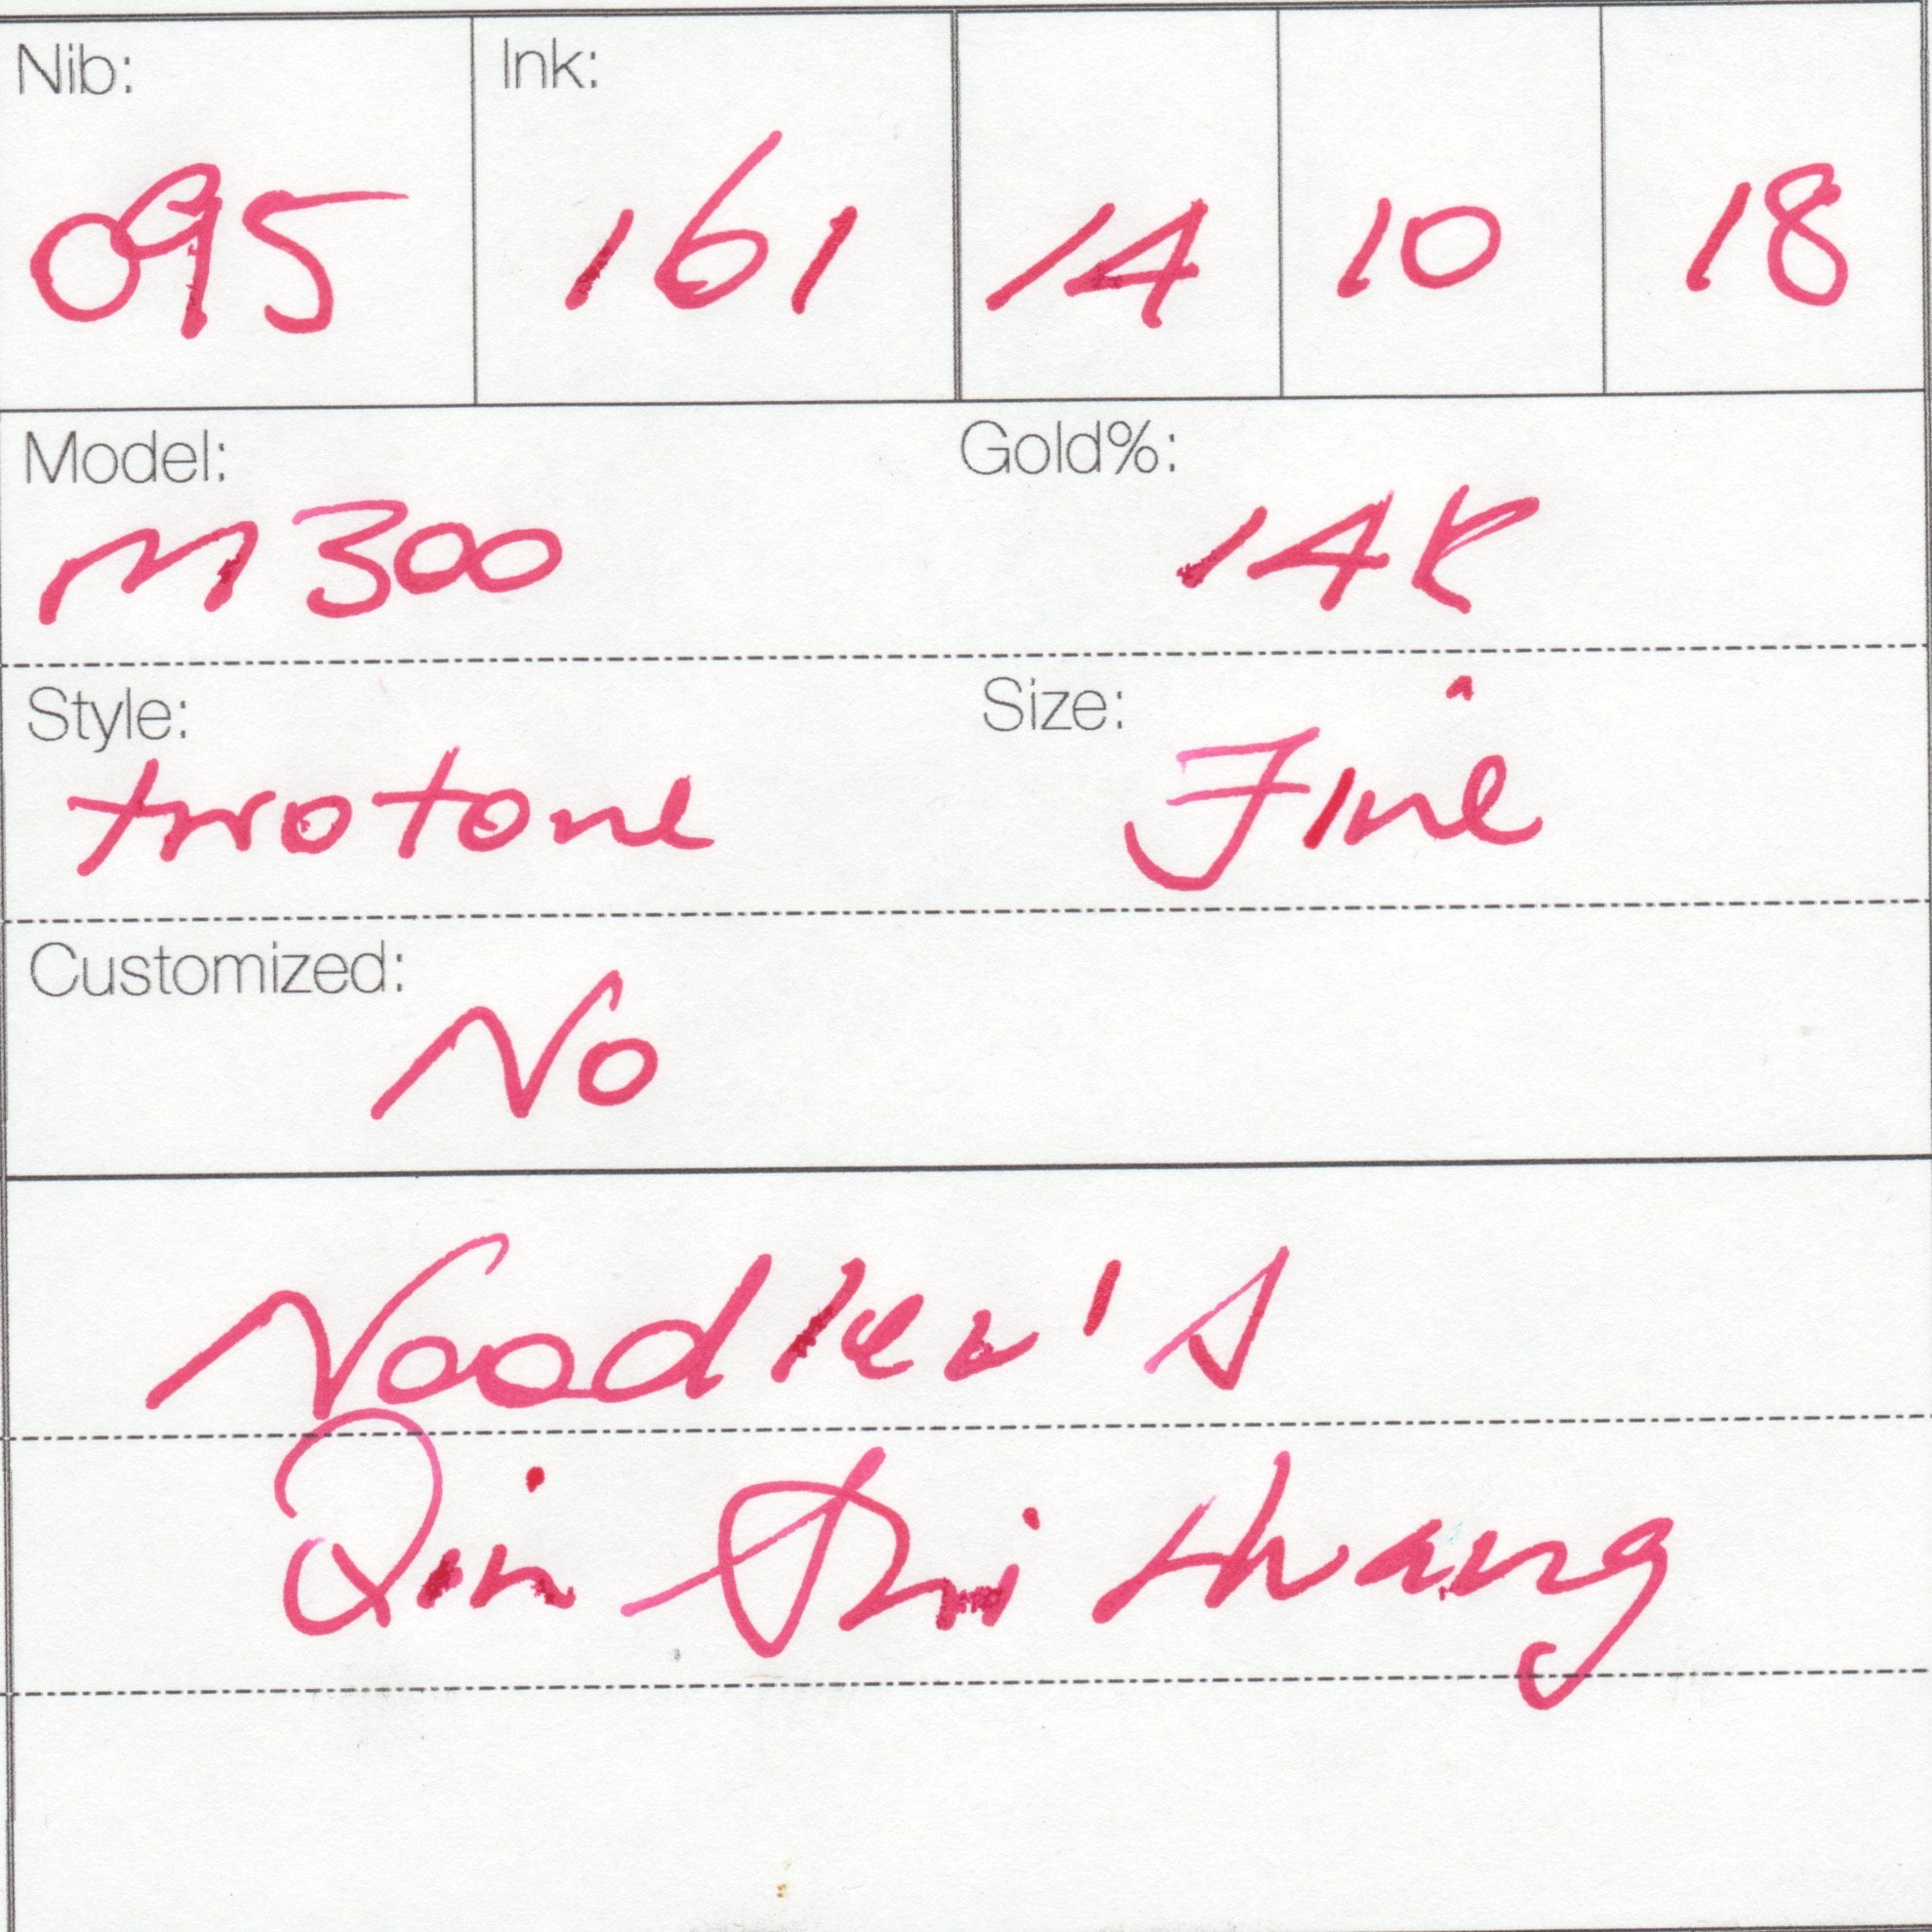 Nib: Ink:
095 161 14 10 18
Model: Gold%:
M300 14K
Style: Size:
twotone Fine
Customized:
No
Noodler's
Qin Shi Huang